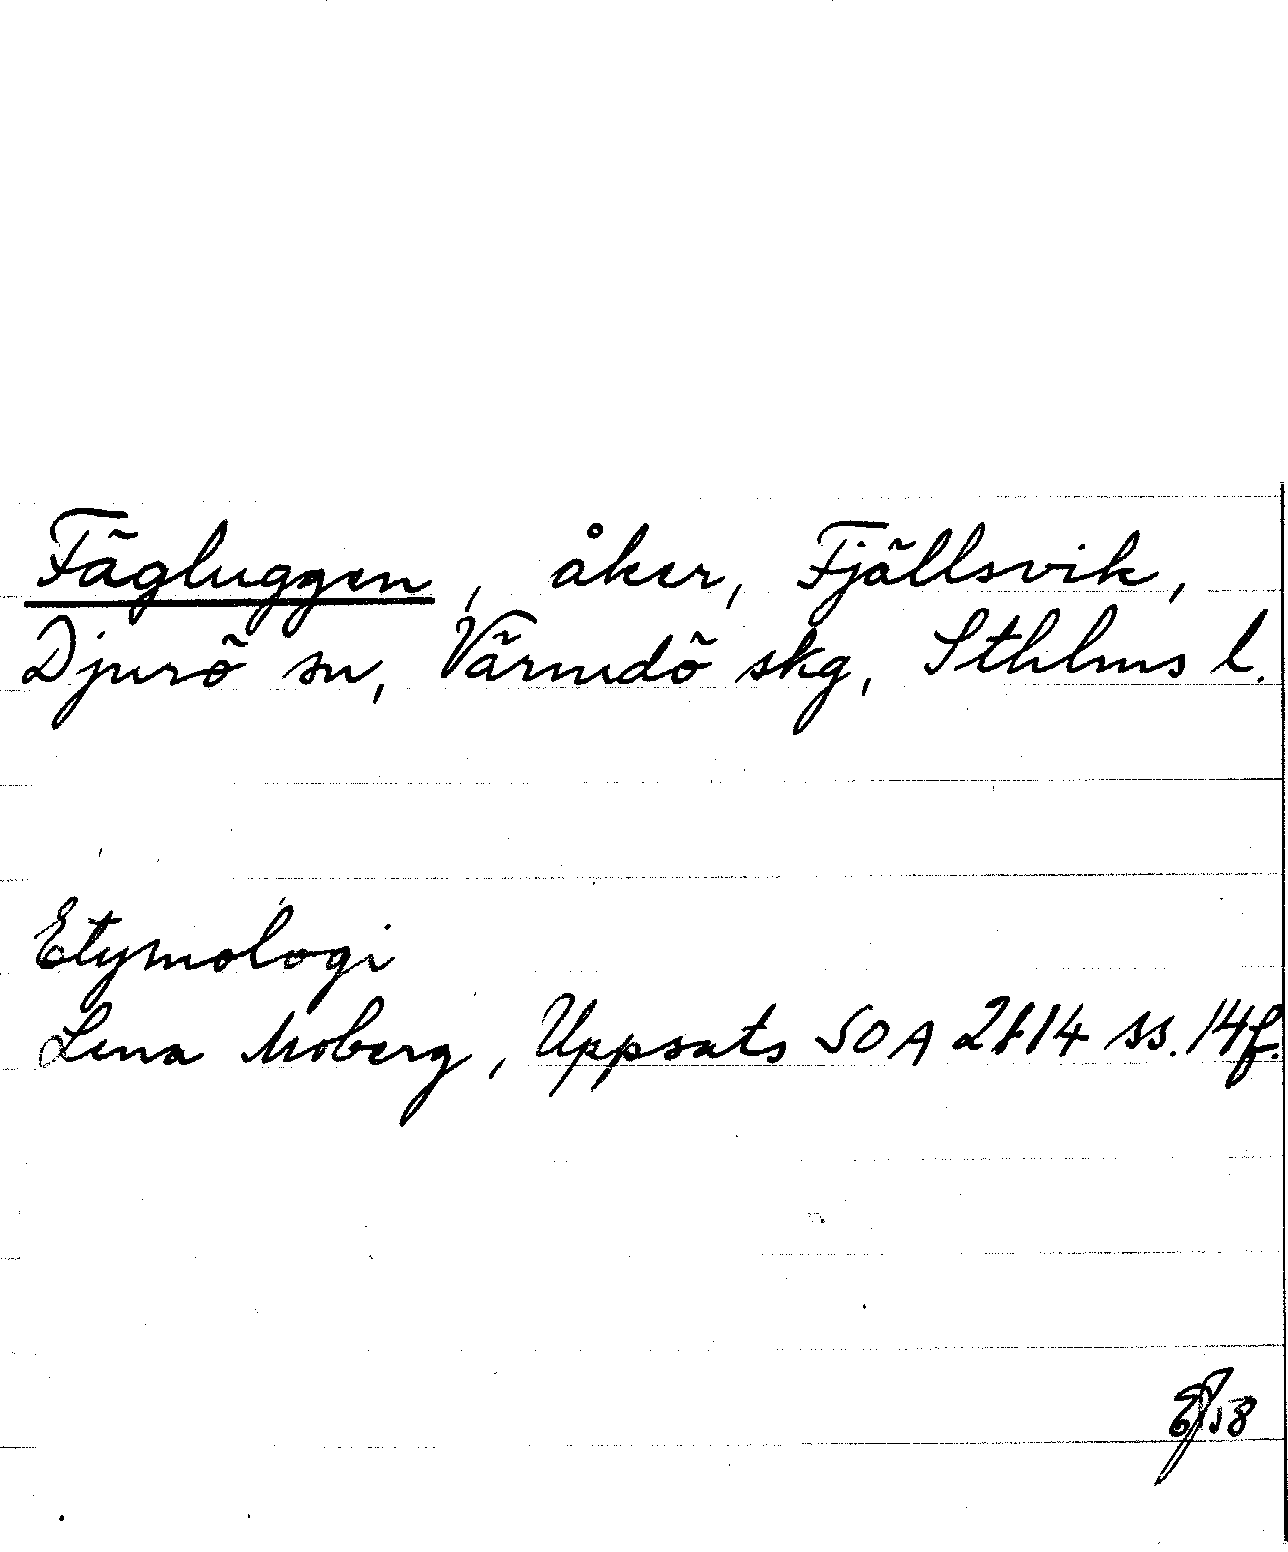 Fägluggen, åker, Fjällsvik,
Djurö sn, Värmdö skg, Sthlms l.
Etymologi
Lena Moberg, Uppsats SOA 2814 ss. 14f.